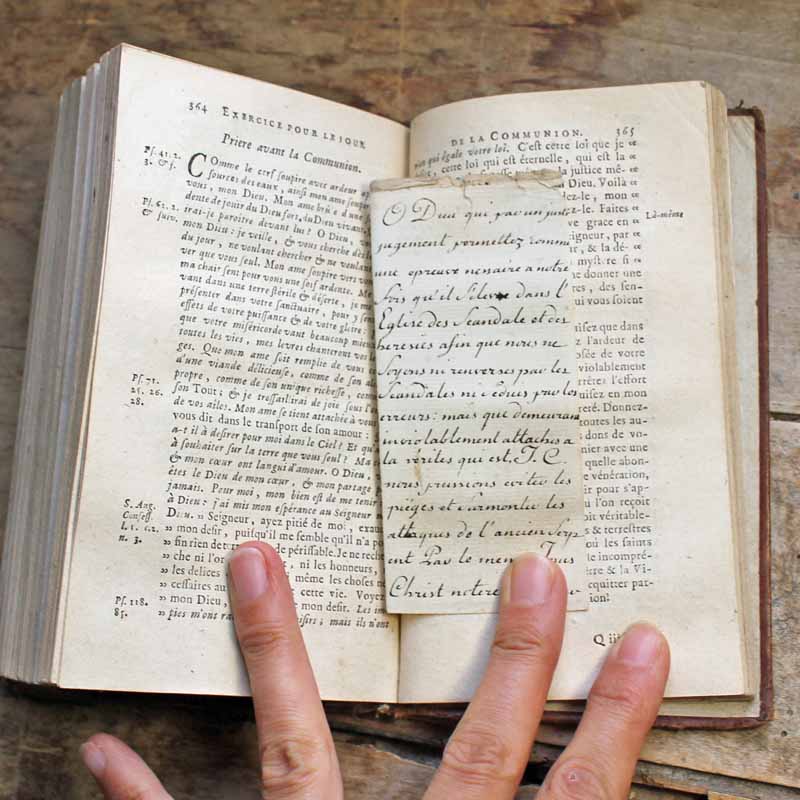 364 EXERCICE POUR LE JOUR
Priere avant la Communion.
Ps. 41. 2.
3. & s.
COmme le cerf soupire avec ardeur
sources des eaux, ainsi mon ame soup
vous, mon Dieu. Mon ame brûle d'une
dente de jouir du Dieu fort, du Dieu vivant,
Ps. 62. 2.
& suiv.
irai-je paroître devant lui? O Dieu,
mon Dieu: je veille, & vous cherche dès
du jour, ne voulant chercher & ne voulant
ver que vous seul. Mon ame soupire vers vou
ma chair sent pour vous une soif ardente. Me
vant dans une terre stérile & déserte, je me
présenter dans votre sanctuaire, pour y
effets de votre puissance & de votre gloire:
que votre miséricorde vaut beaucoup mieux
toutes les vies, mes levres chanteront vos
ges. Que mon ame soit remplie de vous
d'une viande délicieuse, comme de son
Ps. 72.
25. 26.
28.
propre, comme de son unique richesse, comme
son Tout; & je tressaillirai de joie sous l'om
de vos aîles. Mon ame se tient attachée à vous
vous dit dans le transport de son amour:
a-t-il à desirer pour moi dans le Ciel? Et qu'
à souhaiter sur la terre que vous seul? Ma
& mon cœur ont langui d'amour. O Dieu,
êtes le Dieu de mon cœur, & mon partage
jamais. Pour moi, mon bien est de me tenir
à Dieu: j'ai mis mon espérance au Seigneur
S. Aug.
Confess.
l. 1. c. 2.
n. 3.
Dieu. » Seigneur, ayez pitié de moi, exau
» mon desir, puisqu'il me semble qu'il n'a po
» fin rien de périssable. Je ne reche
» che ni l'or ni les honneurs,
» les délices même les choses ne
» cessaires au cette vie. Voyez
Ps. 118.
85.
» mon Dieu, mon desir. Les im
» pies m'ont ra isirs; mais ils n'ont
DE LA COMMUNION. 365
qui égale votre loi. C'est cette loi que je «
cette loi qui est éternelle, qui est la «
justice mê- «
Dieu. Voilà «
dez-le, mon «
te. Faites « Là-même
ve grace en «
eigneur, par «
, & la dé- «
mystere si «
e donner une
res, des sen-
ui vous soient
isez que dans
l'ardeur de
osée de votre
violablement
rrêtez l'effort
uisez en mon
reté. Donnez-
toutes les au-
dons de vo-
nier avec une
quelle abon-
e vénération,
ir pour s'ap-
l'on reçoit
oit véritable-
s & terrestres
ou les saints
le incompré-
être & la Vi-
cquitter par-
ion!
Q iii
O Dieu qui par un juste
jugement permettez comme
une epreuve nenaire a notre
fois qu'il s'Eleve dans l'
Eglise des Scandale et des
heresies afin que nous ne
Soyons ni renversés par les
Scandales ni Séduis par les
erreurs: mais que demeurant
inviolablement attachés a
la vérités qui est. J. C.
nous puissions eviter les
pièges et surmonter les
attaques de l'ancien Serp
ent Par le meme Jesus
Christ notere